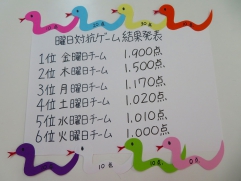 曜日対抗ゲーム結果発表
1位 金曜日チーム 1.900点
2位 木曜日チーム 1.500点
3位 月曜日チーム 1.170点
4位 土曜日チーム 1.020点
5位 水曜日チーム 1.010点
6位 火曜日チーム 1.000点
10点